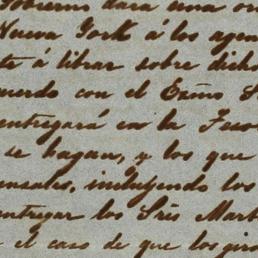 Gobierno dará una or
Nueva York á los agen
te á librar sobre dicho
uerdo con el Exmo. S
entregará en la Teso
se hagan, y los que
ensales, incluyendo los
entregar los Sres Mart
e el caso de que los giro